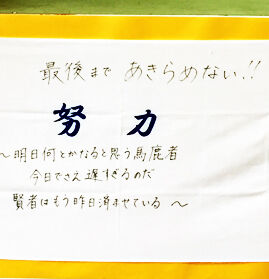 最後まで あきらめない!!
努力
～明日何とかなると思う馬鹿者
今日でさえ遅すぎるのだ
賢者はもう昨日済ませている～